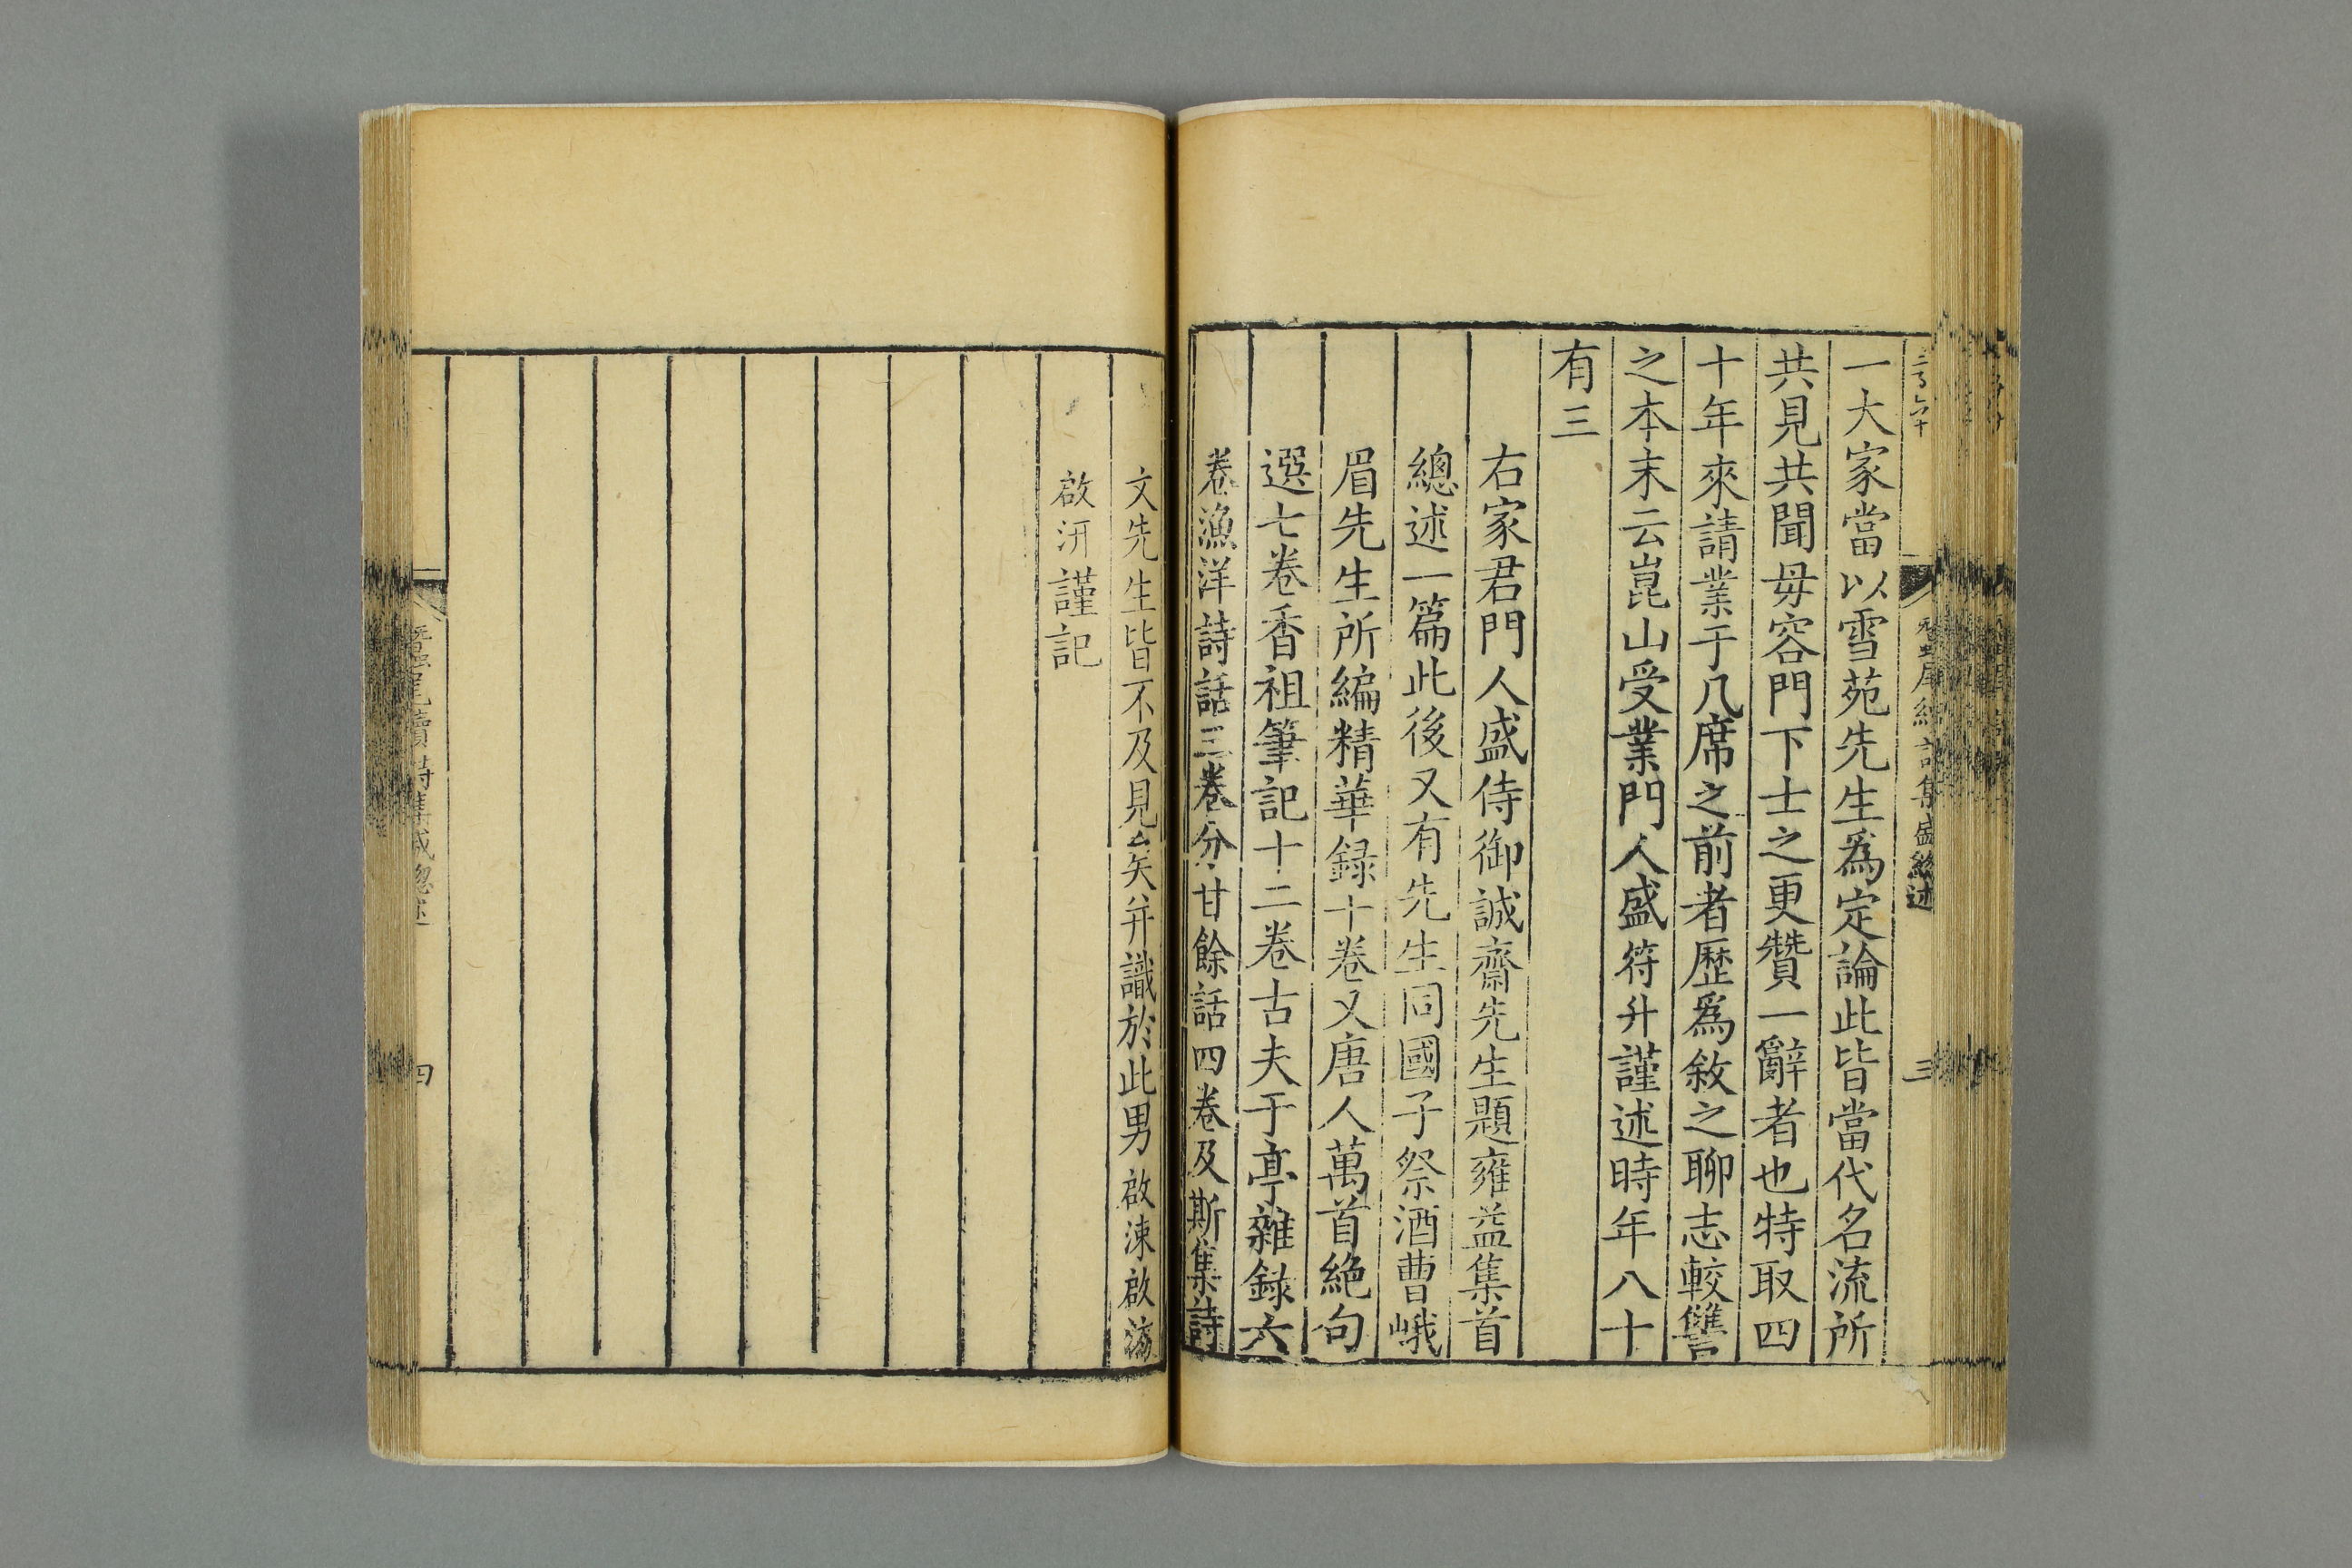 一大家當以雪苑先生爲定論此皆當代名流所
共見共聞毋容門下士之更贊一辭者也特取四
十年來請業于几席之前者歷爲敘之聊志較讐
之本末云崑山受業門人盛符升謹述時年八十
有三
右家君門人盛侍御誠齋先生題雍益集首
總述一篇此後又有先生同國子祭酒曹峨
眉先生所編精華録十卷又唐人萬首絶句
選七卷香祖筆記十二卷古夫于亭雜録六
卷漁洋詩話三卷分甘餘話四卷及斯集詩
三
文先生皆不及見矣并識於此男啟涑啟
啟汧謹記
四